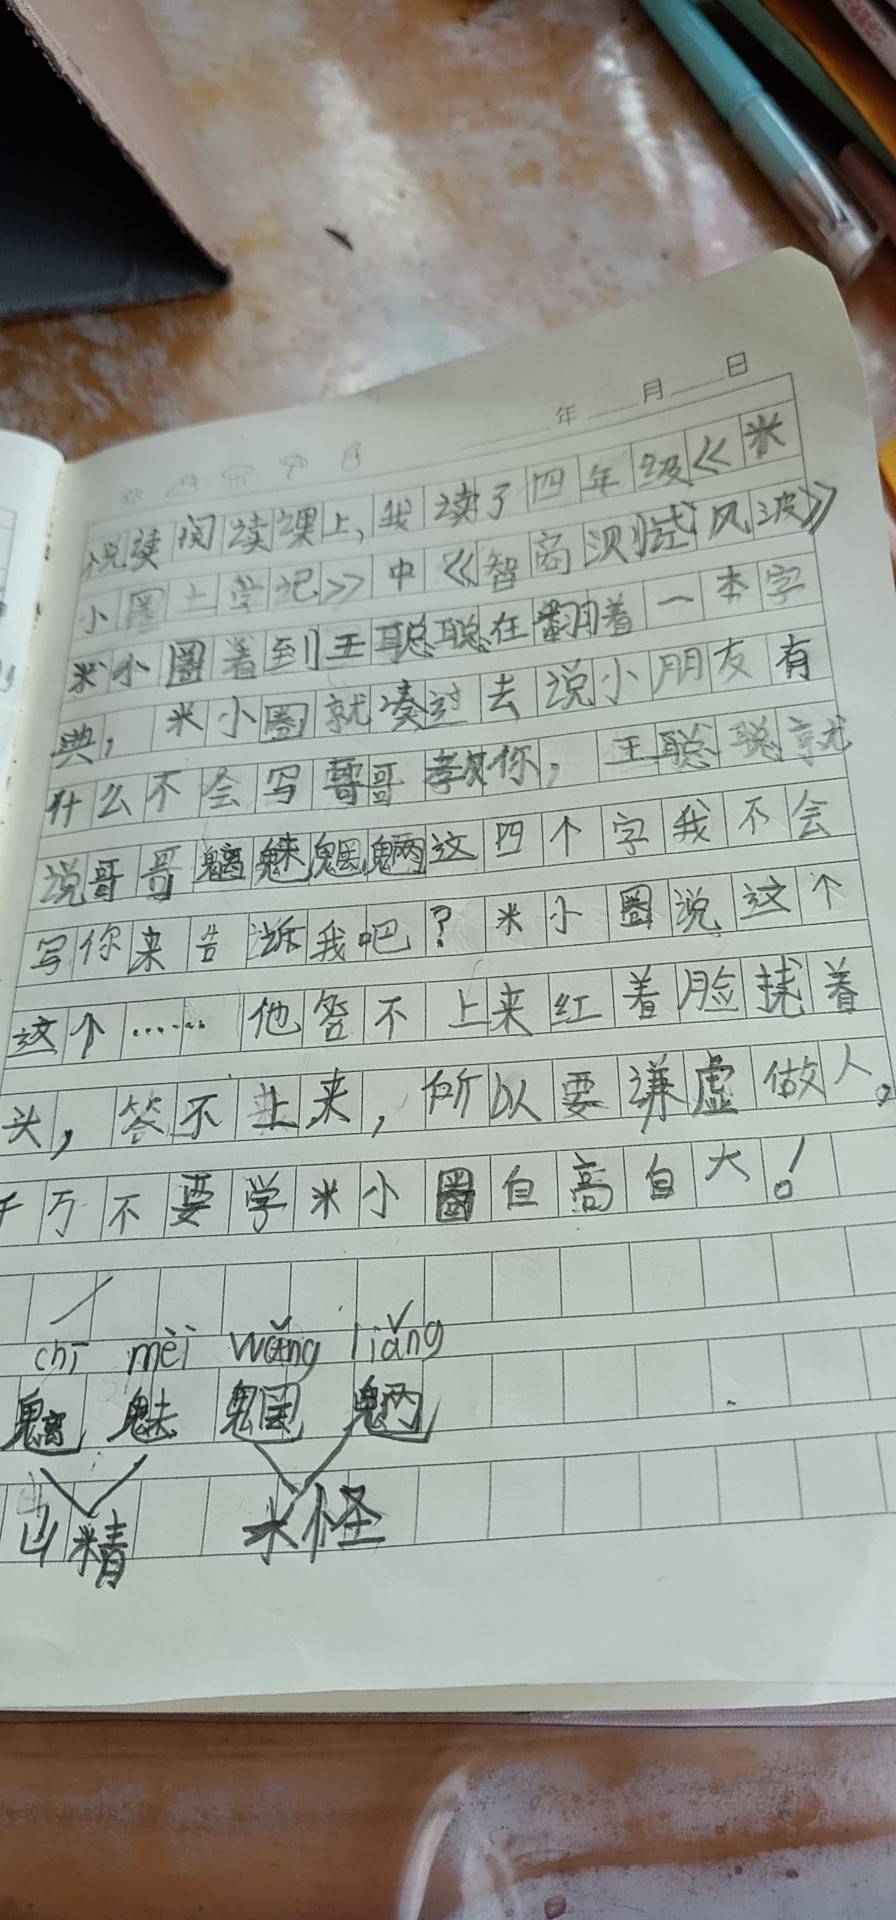 年 月 日
悦读阅读课上，我读了四年级《米
小圈上学记》中《智商测试风波》
米小圈看到王聪聪在翻着一本字
典，米小圈就凑过去说小朋友有
什么不会写哥哥教你，王聪聪就
说哥哥魑魅魍魉这四个字我不会
写你来告诉我吧？米小圈说这个
这个……他答不上来红着脸挠着
头，答不上来，所以要谦虚做人。
千万不要学米小圈自高自大！
chī mèi wǎng liǎng
魑魅魍魉
山精 水怪